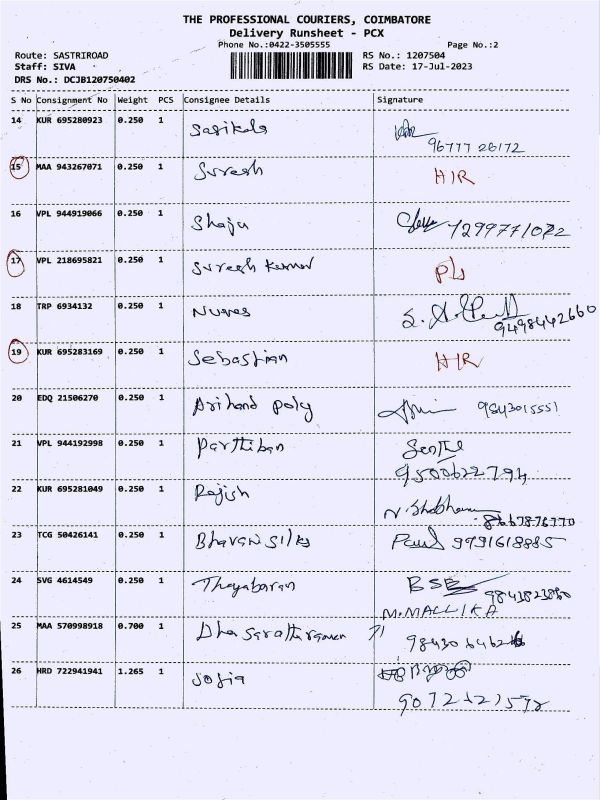 THE PROFESSIONAL COURIERS, COIMBATORE
Delivery Runsheet - PCX
Phone No.:0422-3505555 Page No.:2
Route: SASTRIROAD RS No.: 1207504
Staff: SIVA RS Date: 17-Jul-2023
DRS No.: DCJB120750402
S No Consignment No Weight PCS Consignee Details Signature
14 KUR 695280923 0.250 1 Sasikala
96777 26172
15 MAA 943267071 0.250 1 Suresh HIR
16 VPL 944919066 0.250 1 Shaju 7299771072
17 VPL 218695821 0.250 1 Suresh Kumar
18 TRP 6934132 0.250 1
9498442660
19 KUR 695283169 0.250 1 Sebastian HIR
20 EDQ 21506270 0.250 1 Arihand poly 9843015551
21 VPL 944192998 0.250 1 Parthiban
9500622794
22 KUR 695281049 0.250 1 Rajish
8667876770
23 TCG 50426141 0.250 1 Bhavani silks Paul 9991618885
24 SVG 4614549 0.250 1 Thayabaran BSE
M.MALLIKA
25 MAA 570998918 0.700 1
26 HRD 722941941 1.265 1 Jofia